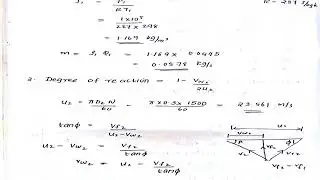 ρ₁ = P₁ / RT₁ R = 287 J/kgk
= 1×10⁵ / 287×298
= 1.169 kg/m³
m = ρ₁ Q₁ = 1.169 × 0.0495
= 0.0578 kg/s
2. Degree of reaction = 1 - Vw₂ / 2u₂
u₂ = πD₂N / 60 = π×0.3×1500 / 60 = 23.561 m/s
tanϕ = Vf₂ / u₂ - Vw₂
u₂ - Vw₂ = Vf₂ / tanϕ
Vw₂ = u₂ - Vf₂ / tanϕ
u₂
Vw₂
Vf₂
Vf₂ = Vf₁